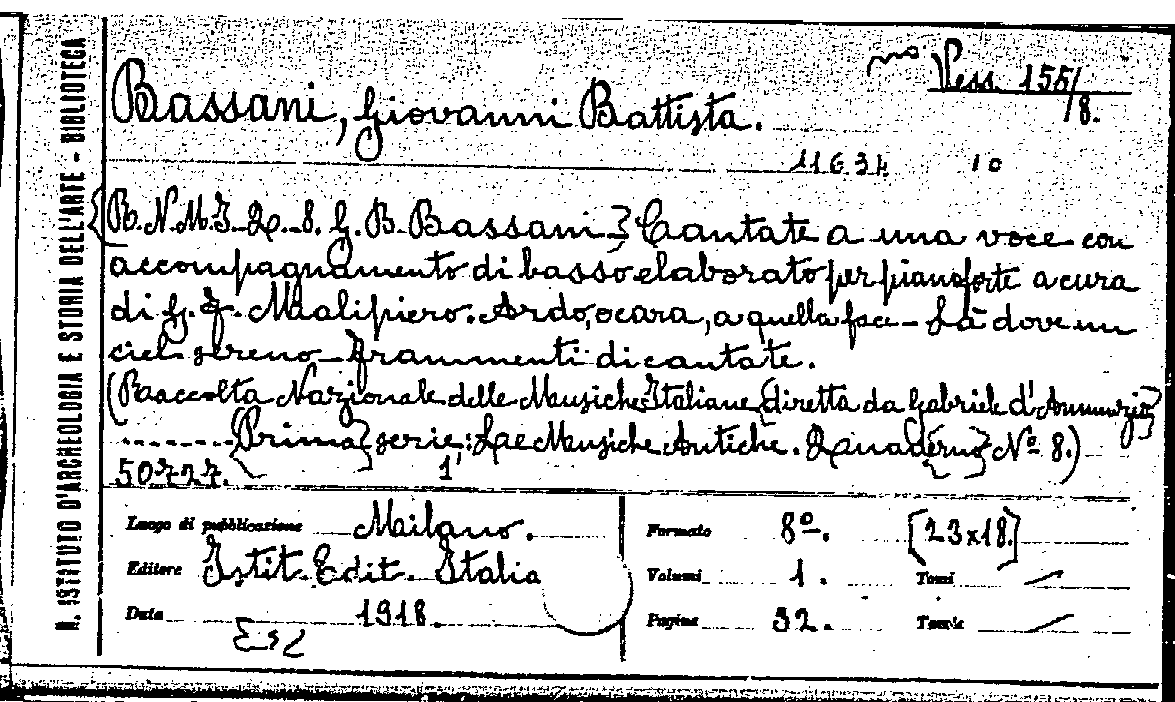 R. ISTITUTO D'ARCHEOLOGIA E STORIA DELL'ARTE - BIBLIOTECA
Vess. 155/8.
Bassani, Giovanni Battista.
11634 10
{R.N.M.I. Q. 8. G. B. Bassani} Cantate a una voce con
accompagnamento di basso elaborato per pianoforte a cura
di G. F. Malipiero. Ardo, o cara, a quella face - Là dove un
ciel sereno - Frammenti di cantate.
(Raccolta Nazionale delle Musiche Italiane {diretta da Gabriele d'Annunzio}
{Prima} serie: Le Musiche Antiche. Quaderno Nº 8.)
50727. 1
Luogo di pubblicazione Milano. Formato 8º. [23x18.]
Editore Istit. Edit. Italia Volumi 1. Tomi /
Data 1918. Pagine 32. Tavole /